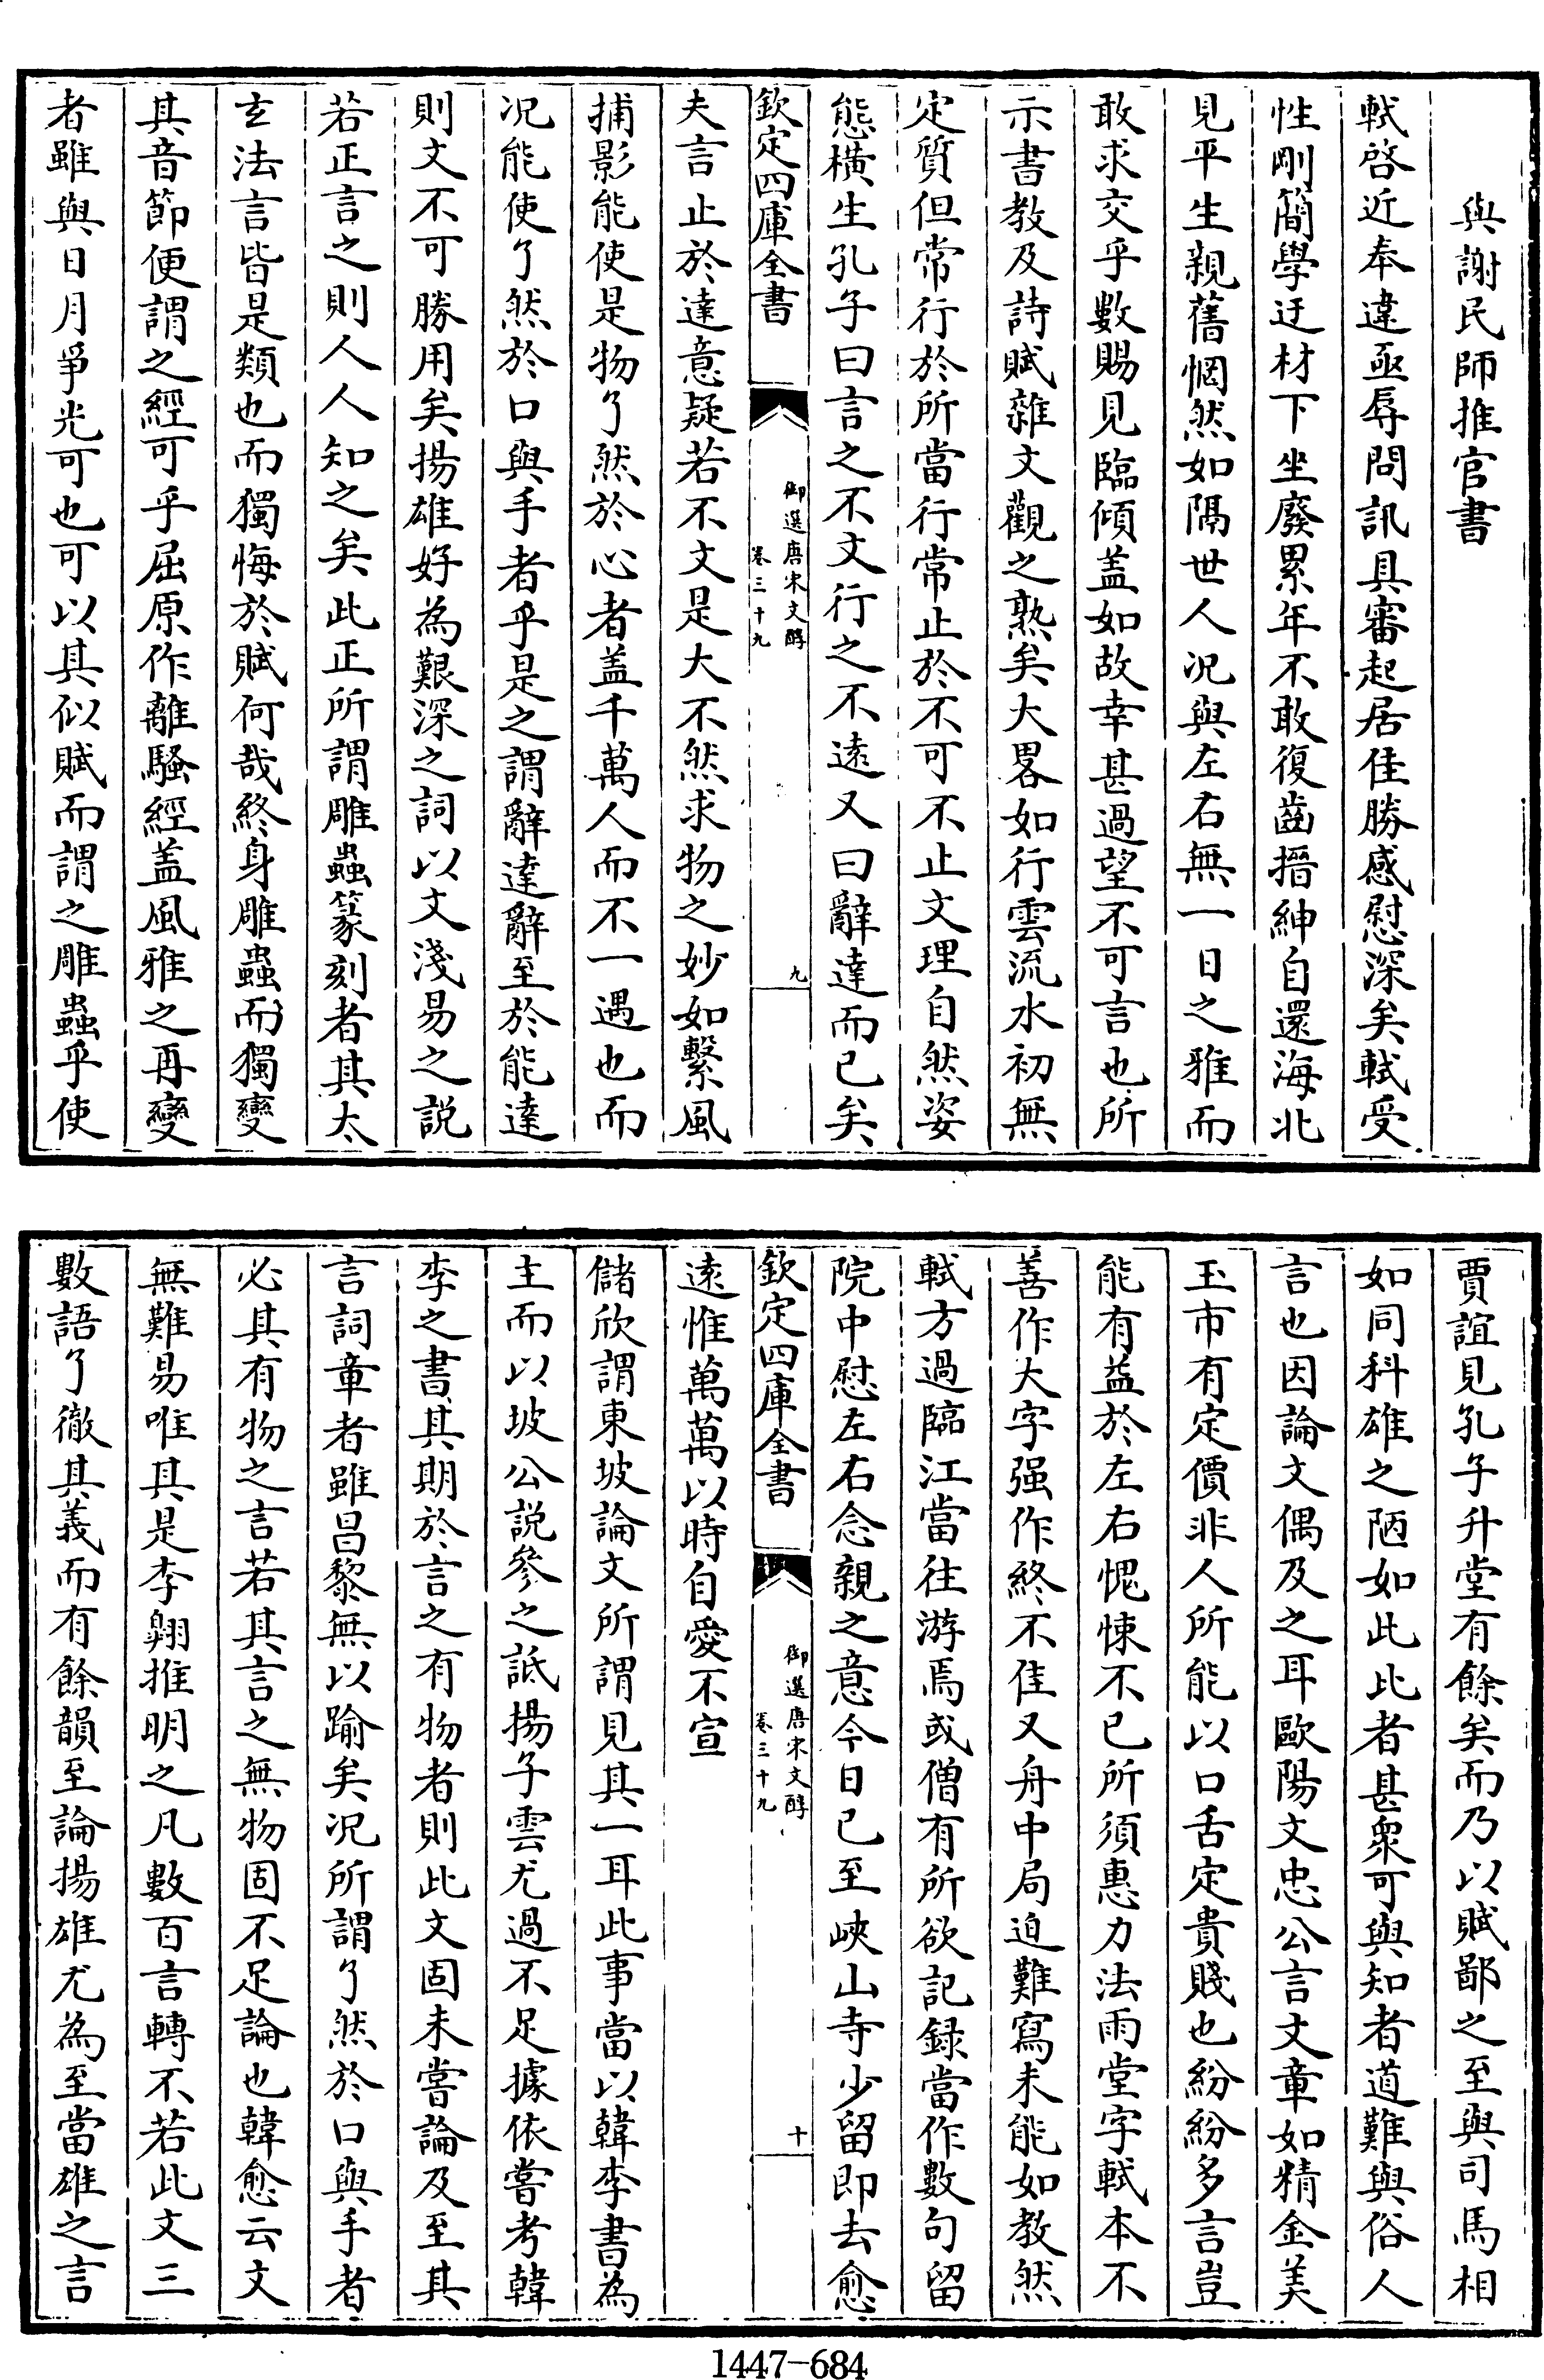 與謝民師推官書
軾啓近奉違亟辱問訊具審起居佳勝感慰深矣軾受
性剛簡學迂材下坐廢累年不敢復齒搢紳自還海北
見平生親舊惘然如隔世人况與左右無一日之雅而
敢求交乎數賜見臨傾盖如故幸甚過望不可言也所
示書教及詩賦雜文觀之熟矣大畧如行雲流水初無
定質但常行於所當行常止於不可不止文理自然姿
態橫生孔子曰言之不文行之不逺又曰辭達而已矣
欽定四庫全書
御選唐宋文醇
卷三十九
九
夫言止於達意疑若不文是大不然求物之妙如繫風
捕影能使是物了然於心者盖千萬人而不一遇也而
况能使了然於口與手者乎是之謂辭達辭至於能達
則文不可勝用矣揚雄好為艱深之詞以文淺易之說
若正言之則人人知之矣此正所謂雕蟲篆刻者其太
玄法言皆是類也而獨悔於賦何哉終身雕蟲而獨變
其音節便謂之經可乎屈原作離騷經盖風雅之再變
者雖與日月爭光可也可以其似賦而謂之雕蟲乎使
賈誼見孔子升堂有餘矣而乃以賦鄙之至與司馬相
如同科雄之陋如此比者甚衆可與知者道難與俗人
言也因論文偶及之耳歐陽文忠公言文章如精金美
玉市有定價非人所能以口舌定貴賤也紛紛多言豈
能有益於左右愧悚不已所須惠力法雨堂字軾本不
善作大字强作終不佳又舟中局迫難寫未能如教然
軾方過臨江當往游焉或僧有所欲記録當作數句留
院中慰左右念親之意今日已至峽山寺少留即去愈
欽定四庫全書
御選唐宋文醇
卷三十九
十
逺惟萬萬以時自愛不宣
儲欣謂東坡論文所謂見其一耳此事當以韓李書為
主而以坡公說參之詆揚子雲尤過不足據依嘗考韓
李之書其期於言之有物者則此文固未嘗論及至其
言詞章者雖昌黎無以踰矣况所謂了然於口與手者
必其有物之言若其言之無物固不足論也韓愈云文
無難易唯其是李翶推明之凡數百言轉不若此文三
數語了徹其義而有餘韻至論揚雄尤為至當雄之言
1447-684